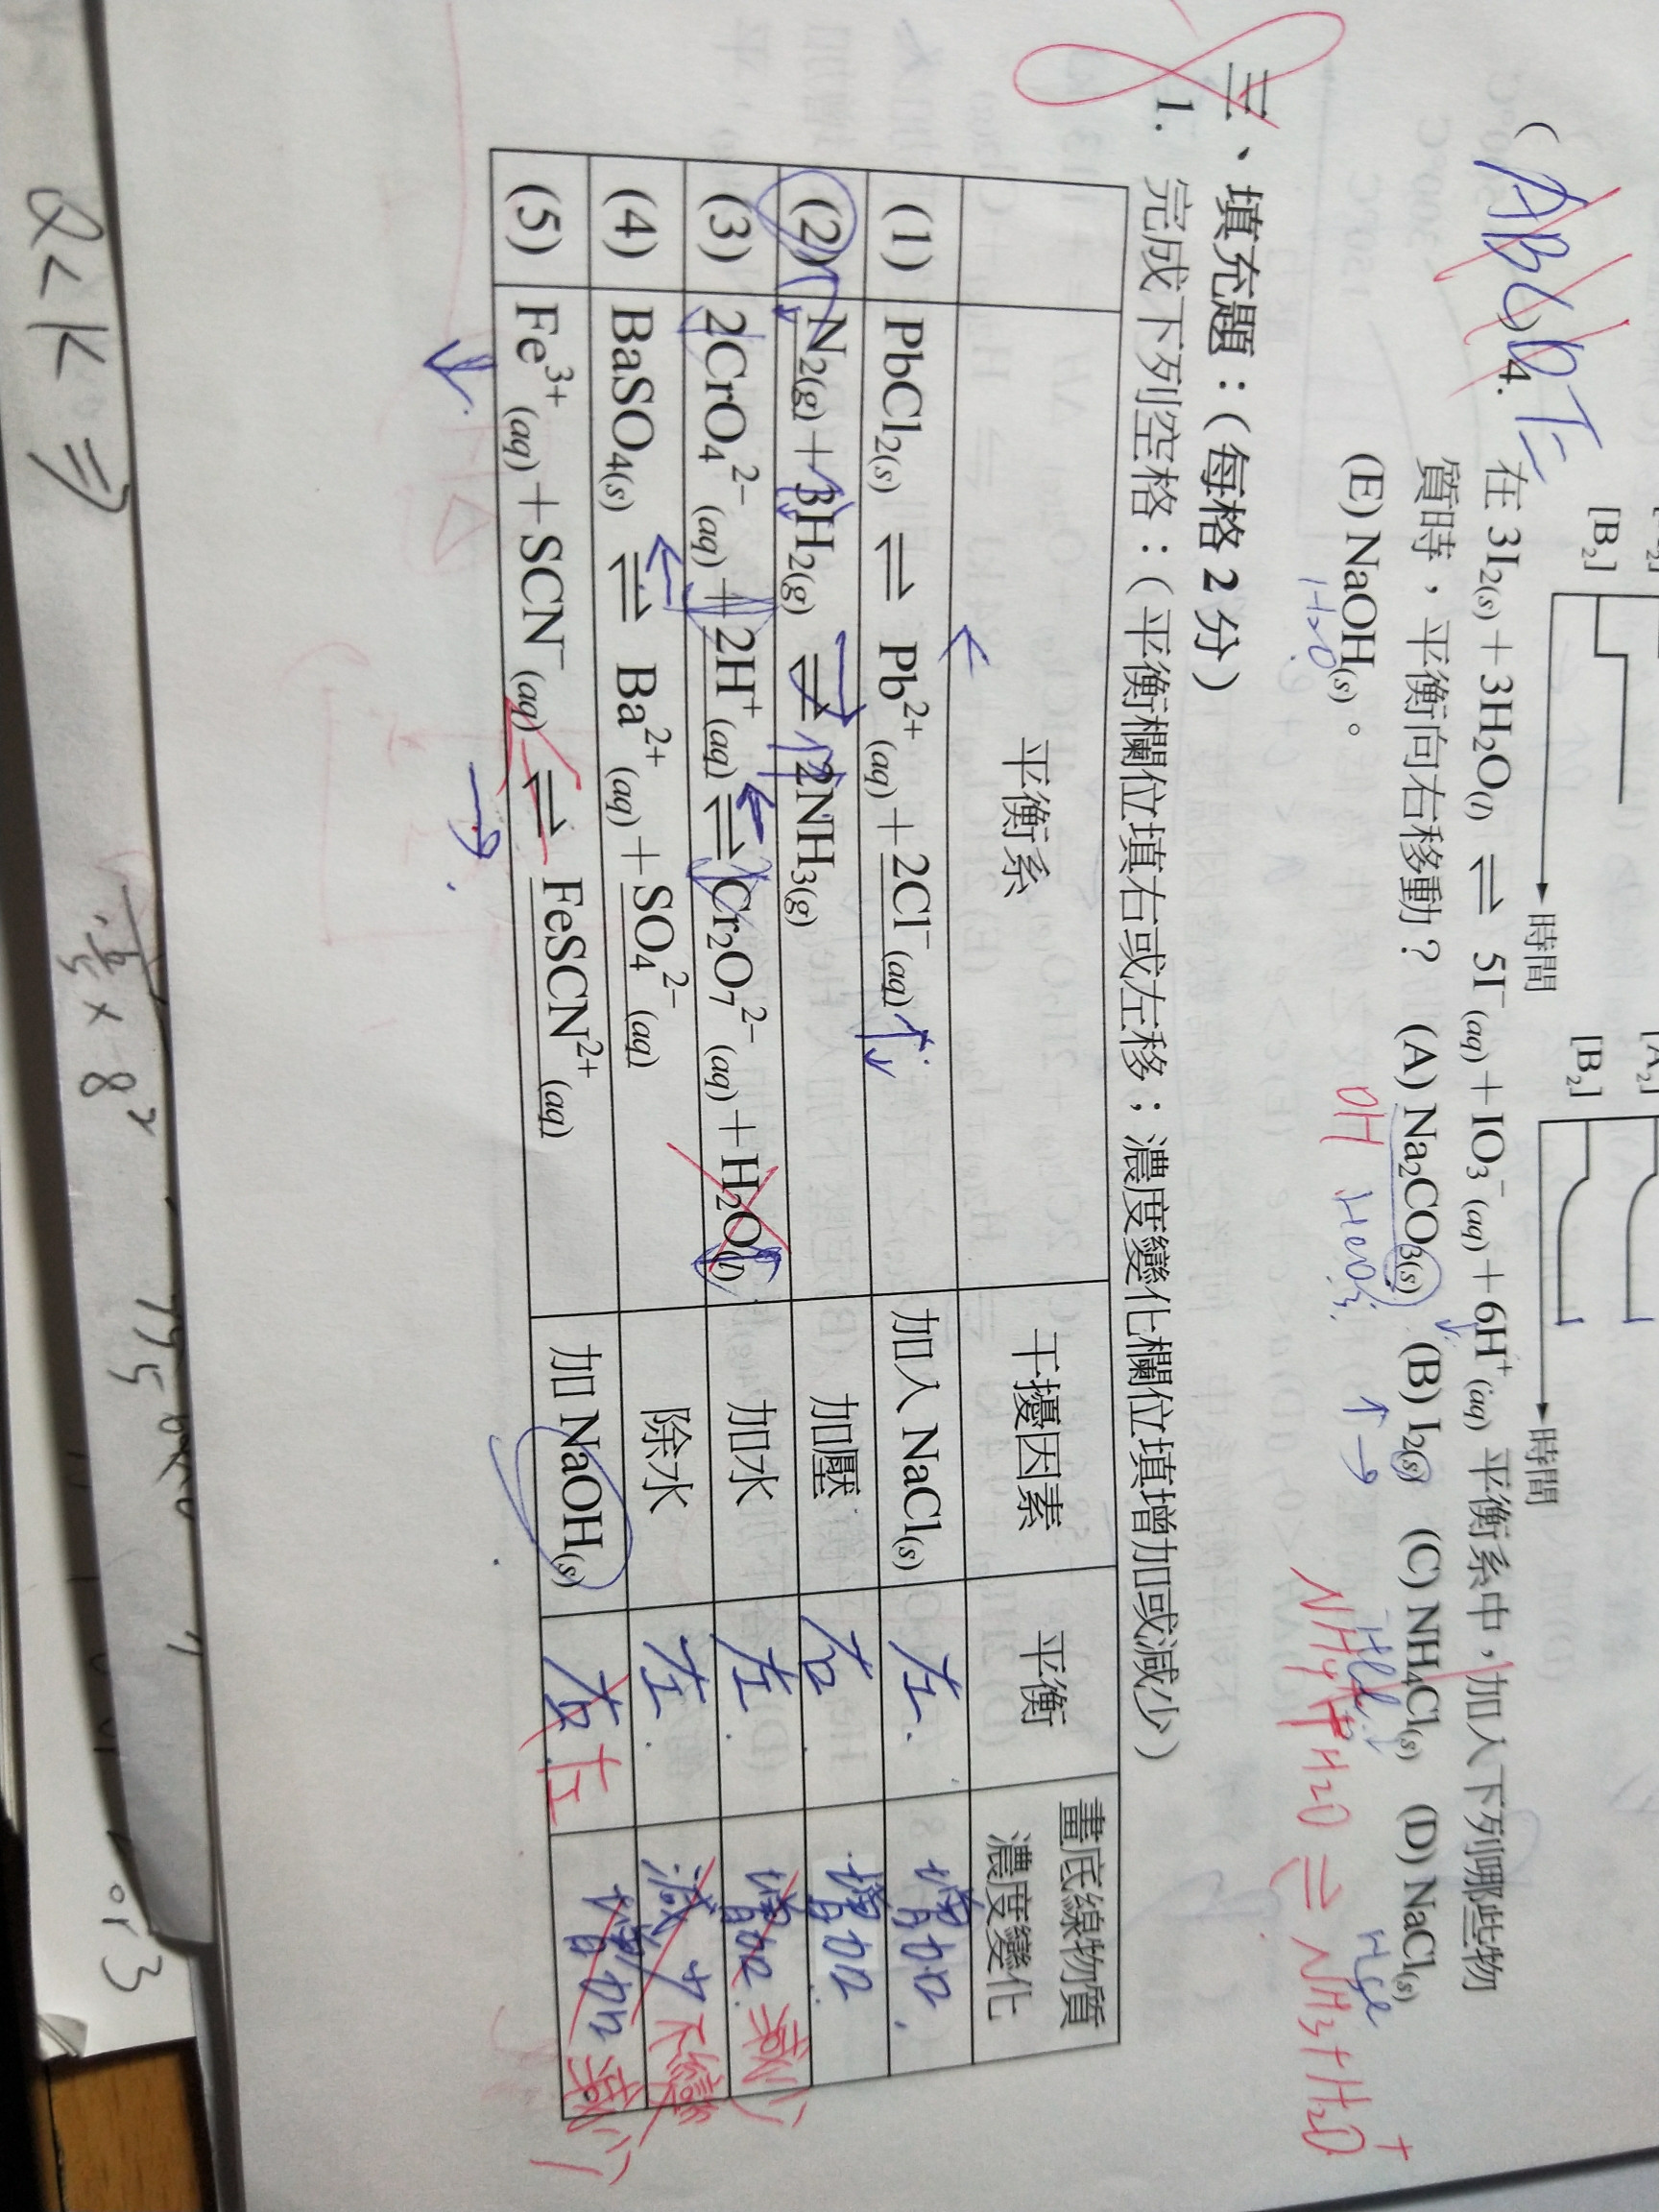 [B₂]
[A₂]
[B₂]
時間
時間
( ABCDE )4. 在 3I₂(s)＋3H₂O(l) ⇌ 5I⁻(aq)＋IO₃⁻(aq)＋6H⁺(aq) 平衡系中，加入下列哪些物
質時，平衡向右移動？ (A) Na₂CO₃(s) (B) I₂(s) (C) NH₄Cl(s) (D) NaCl(s)
(E) NaOH(s)。
H₂O
OH
三、填充題：（每格 2 分）
1. 完成下列空格：（平衡欄位填右或左移；濃度變化欄位填增加或減少）
平衡系 干擾因素 平衡 畫底線物質濃度變化
(1) PbCl₂(s) ⇌ Pb²⁺(aq)＋2Cl⁻(aq) 加入 NaCl(s) 左 增加
(2) N₂(g)＋3H₂(g) ⇌ 2NH₃(g) 加壓 右 增加
(3) 2CrO₄²⁻(aq)＋2H⁺(aq) ⇌ Cr₂O₇²⁻(aq)＋H₂O(l) 加水 左 增加 減少
(4) BaSO₄(s) ⇌ Ba²⁺(aq)＋SO₄²⁻(aq) 除水 左 減少 不變
(5) Fe³⁺(aq)＋SCN⁻(aq) ⇌ FeSCN²⁺(aq) 加 NaOH(s) 右 左 增加 減少
Q < K ⇒
or 3